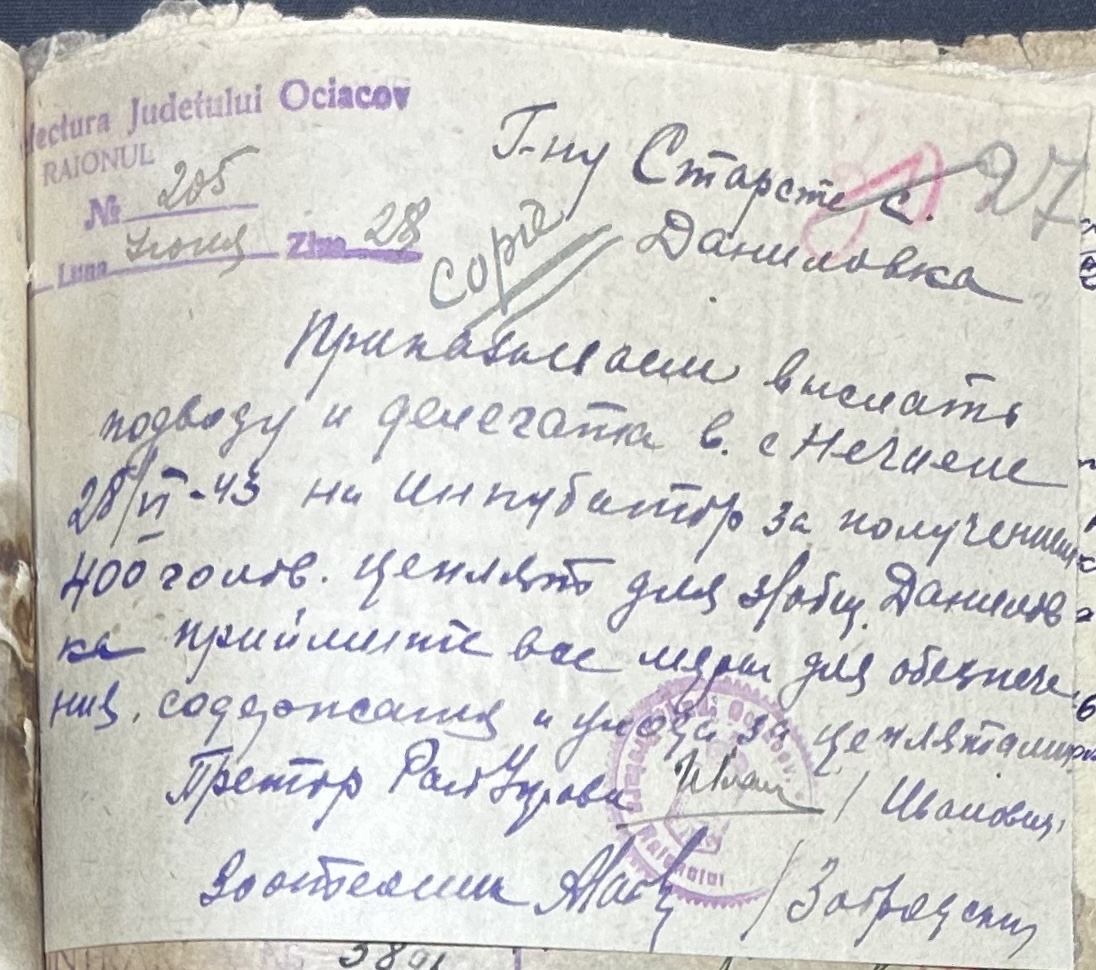 fectura Judetului Ociacov
RAIONUL
№ 205
Luna Июня Ziua 28
Г-ну Старсте с.
27
Даниловка
copie
Приказываем выслать
подводу и делегатка в. с Нечаене
28/VI-43 на Инкубатор за получением
400 голов. цеплят для з/общ. Данилов
ка приймите все меры для обеспече
ния, содержания и ухода за цеплятами
Претор Рай Управы / Иванович,
Зоотехник / Загродский
Raionului